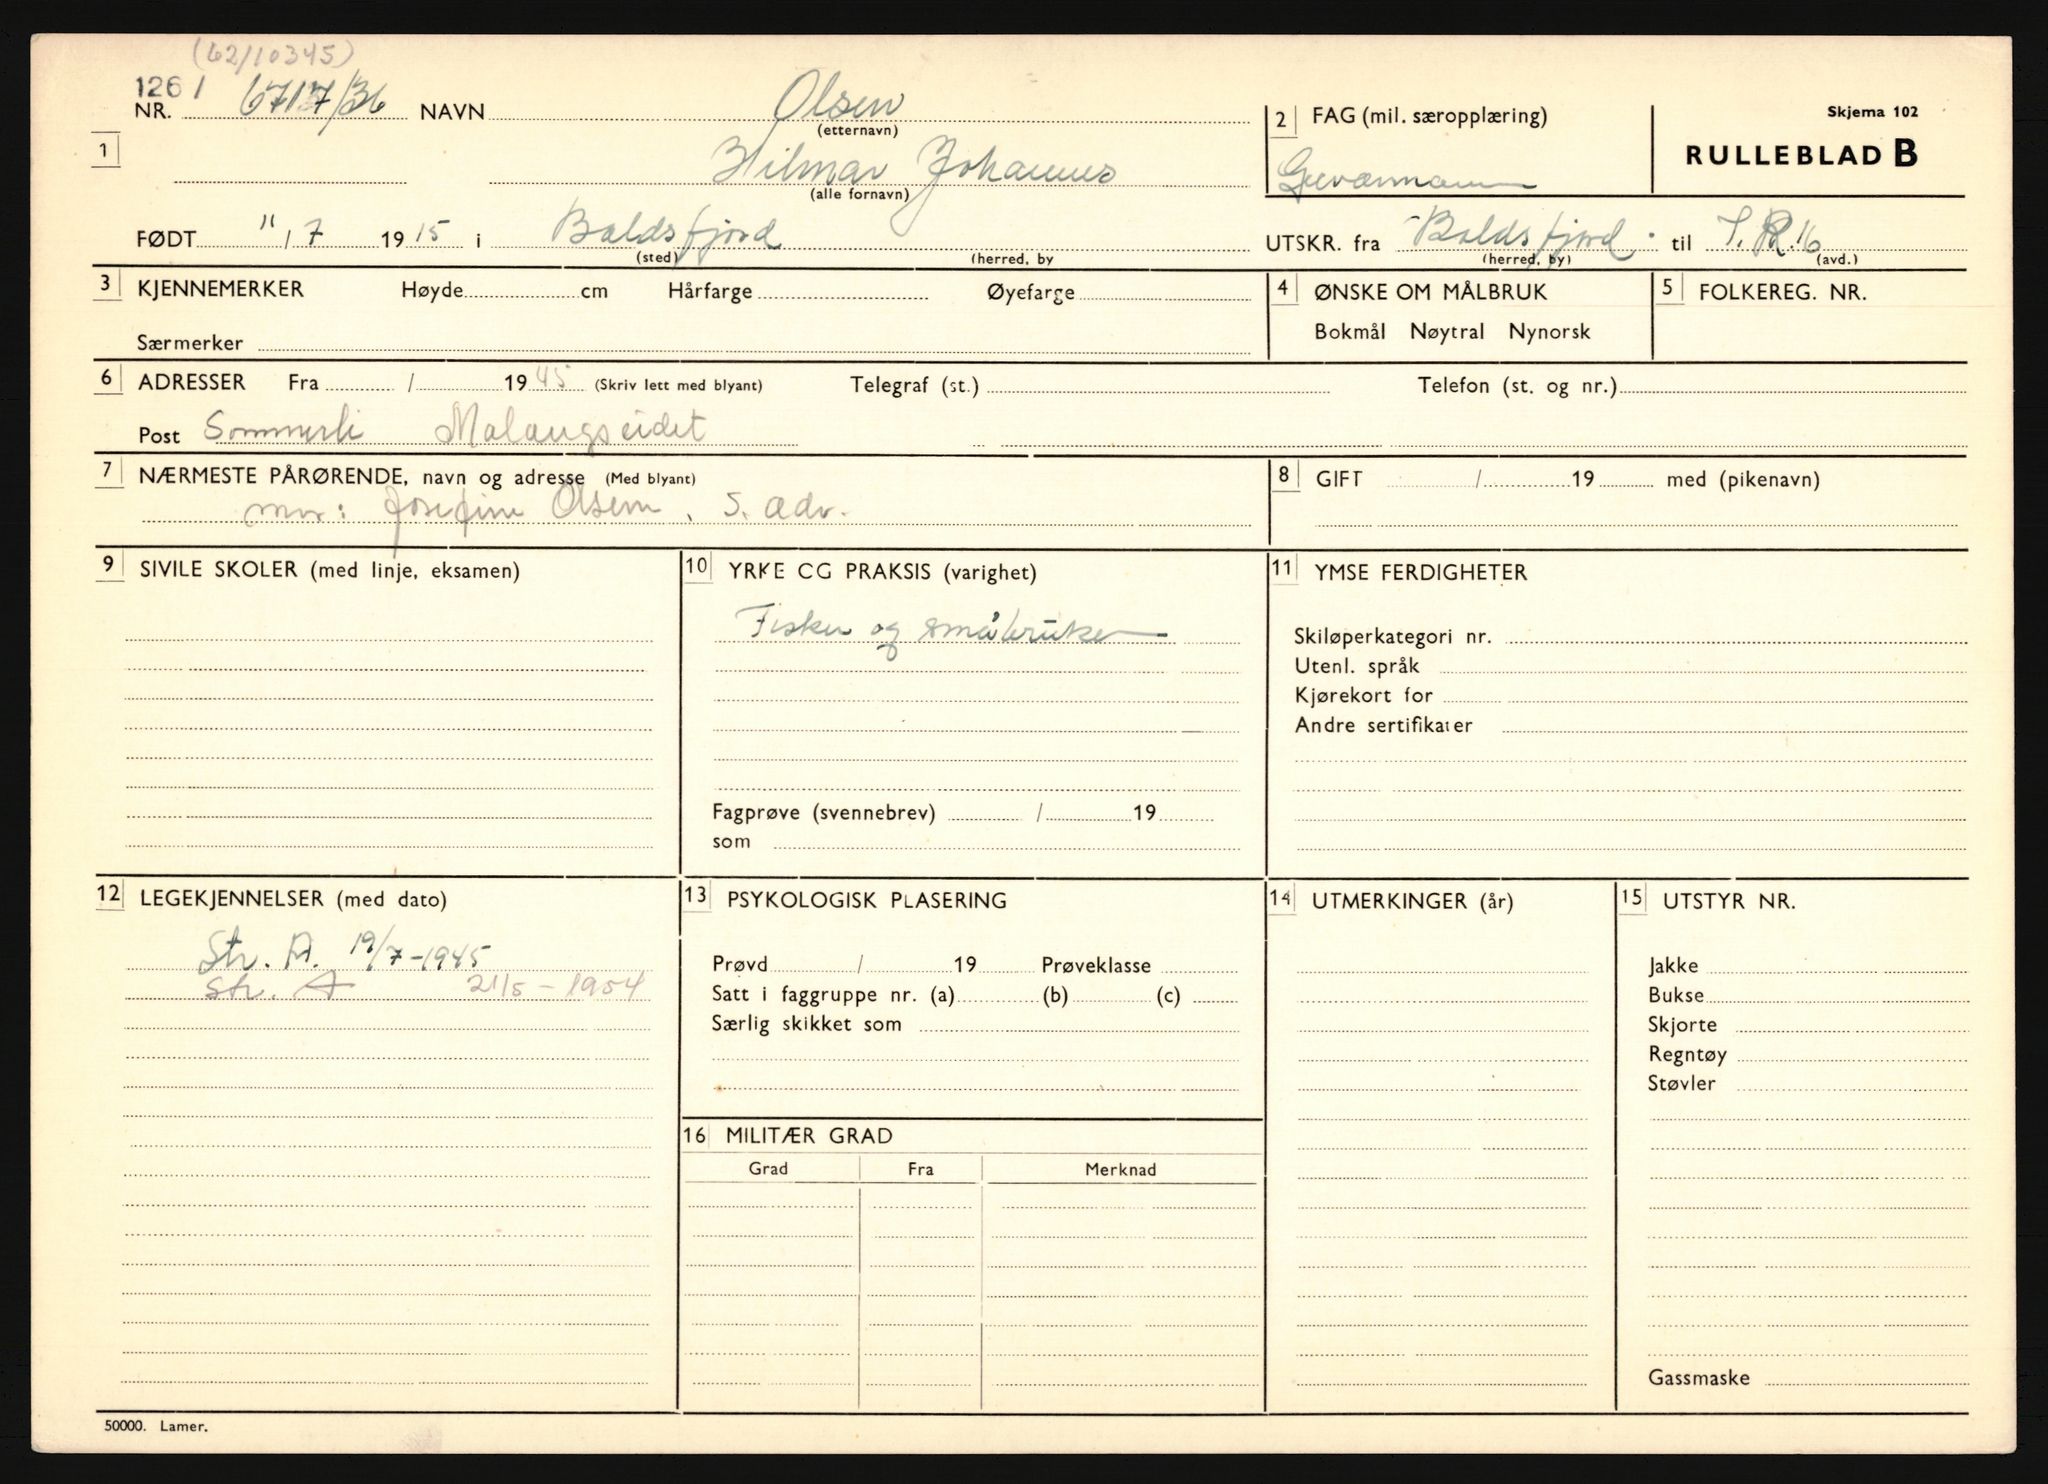 (62/10345)
1261
NR. 6717/36 NAVN Olsen
(etternavn)
2 FAG (mil. særopplæring)
Skjema 102
RULLEBLAD B
1
Hilmar Johannes
(alle fornavn)
Geværmann
FØDT 11/7 1915 i Baldsfjord
(sted) (herred, by
UTSKR. fra Baldsfjord. til I.R.16
(herred, by) (avd.)
3 KJENNEMERKER Høyde cm Hårfarge Øyefarge
Særmerker
4 ØNSKE OM MÅLBRUK
Bokmål Nøytral Nynorsk
5 FOLKEREG. NR.
6 ADRESSER Fra / 1945 (Skriv lett med blyant) Telegraf (st.) Telefon (st. og nr.)
Post Sommerli Malangseidet
7 NÆRMESTE PÅRØRENDE, navn og adresse (Med blyant)
mor: Josefine Olsen, s. adr.
8 GIFT / 19 med (pikenavn)
9 SIVILE SKOLER (med linje, eksamen)
10 YRKE CG PRAKSIS (varighet)
Fisker og småbruker
Fagprøve (svennebrev) / 19
som
11 YMSE FERDIGHETER
Skiløperkategori nr.
Utenl. språk
Kjørekort for
Andre sertifikater
12 LEGEKJENNELSER (med dato)
Str. A. 19/7-1945
Str. A 21/5-1954
13 PSYKOLOGISK PLASERING
Prøvd / 19 Prøveklasse
Satt i faggruppe nr. (a) (b) (c)
Særlig skikket som
14 UTMERKINGER (år)
15 UTSTYR NR.
Jakke
Bukse
Skjorte
Regntøy
Støvler
Gassmaske
16 MILITÆR GRAD
Grad Fra Merknad
50000. Lamer.